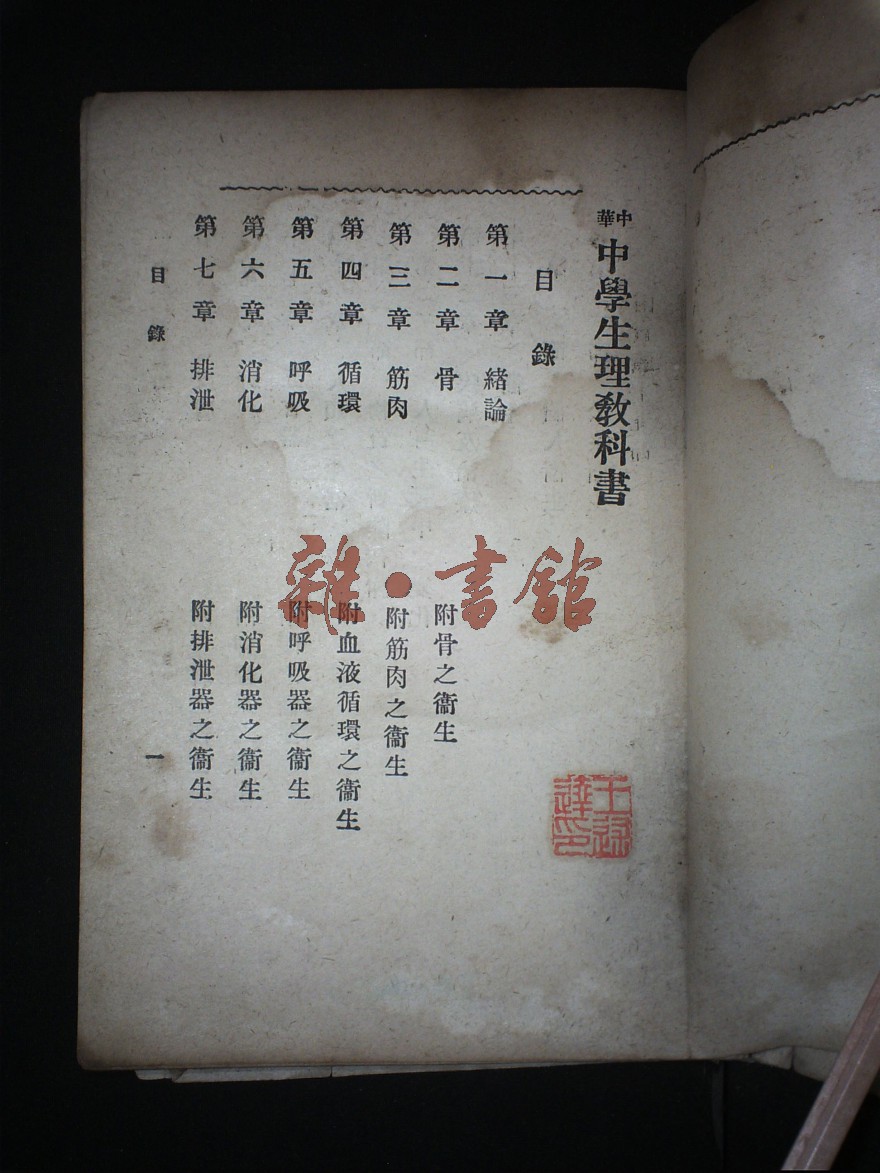 中華 中學生理教科書
目錄
第一章 緒論
第二章 骨 附骨之衞生
第三章 筋肉 附筋肉之衞生
第四章 循環 附血液循環之衞生
第五章 呼吸 附呼吸器之衞生
第六章 消化 附消化器之衞生
第七章 排泄 附排泄器之衞生
目錄 一
雜·書館